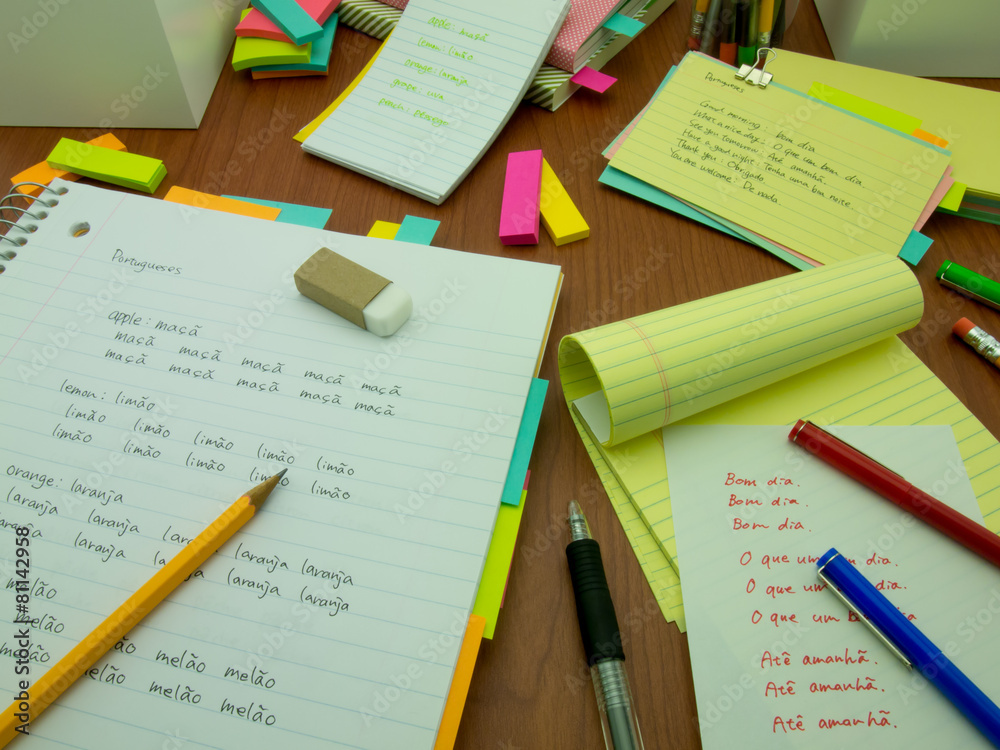 apple : maçã
lemon : limão
orange : laranja
grape : uva
peach : pêssego
Portugueses
Good morning : Bom dia
Have a nice day : O que um bom dia.
See you tomorrow : Até amanhã.
Have a good night : Tenha uma boa noite.
Thank you : Obrigado
You are welcome : De nada.
Portugueses
apple : maçã
maçã maçã maçã maçã maçã
maçã maçã maçã maçã maçã
lemon : limão
limão limão limão limão limão
limão limão limão limão limão
orange : laranja
laranja laranja laranja laranja
laranja laranja laranja laranja
melão
melão melão melão
melão melão melão melão
Bom dia.
Bom dia.
Bom dia.
O que um bom dia.
O que um dia.
O que um b
Atê amanhã.
Atê amanhã.
Atê amanhã.
Adobe Stock | #81142958